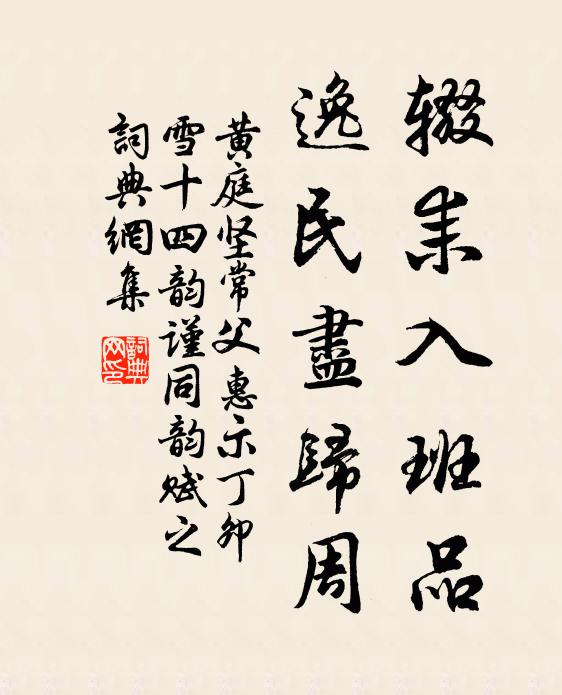 辍耒入班品
逸民盡歸周
黄庭坚常父惠示丁卯
雪十四韵谨同韵赋之
詞典網集
詞典網印